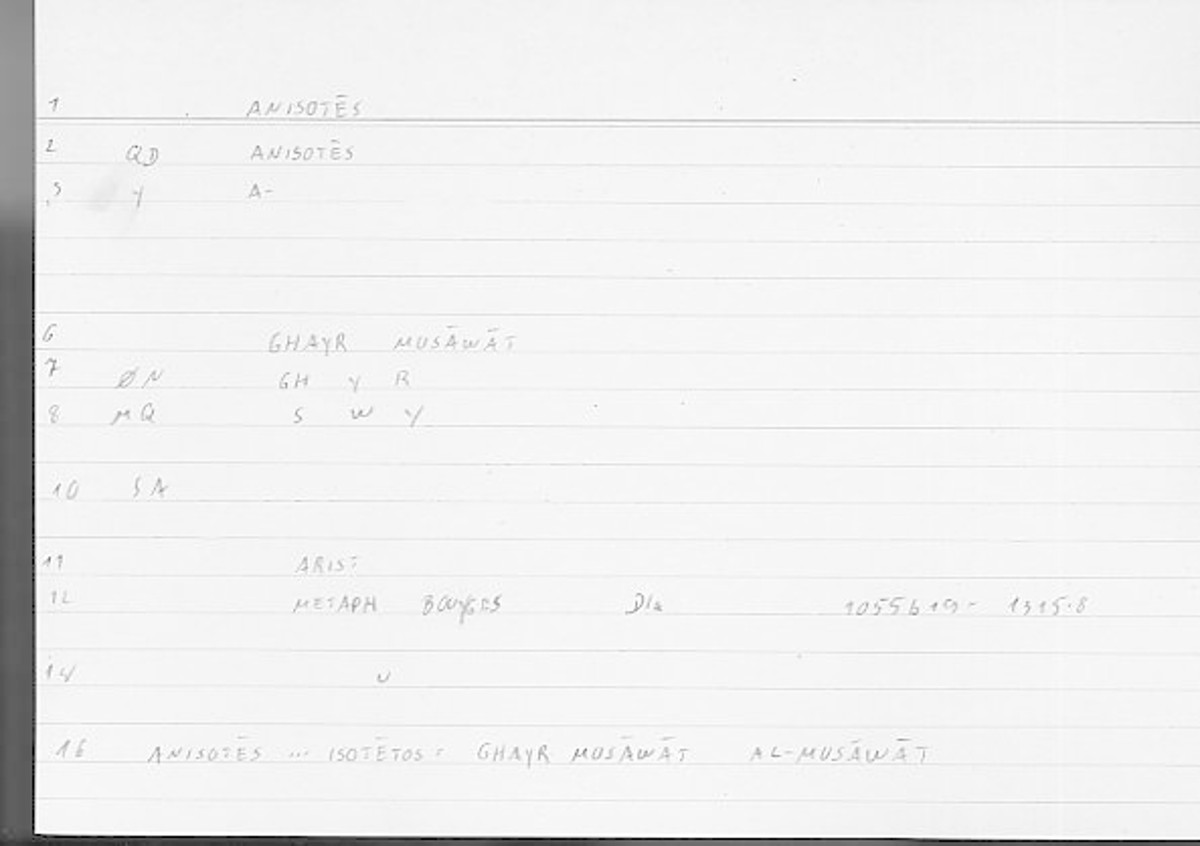 1 ANISOTĒS
2 QD ANISOTĒS
3 Y A-
6 GHAYR MUSĀWĀT
7 ØN GH Y R
8 MQ S W Y
10 SA
11 ARIST
12 METAPH BOUYGES D1a 1055b19- 1315.8
14 U
16 ANISOTĒS ... ISOTĒTOS = GHAYR MUSĀWĀT AL-MUSĀWĀT